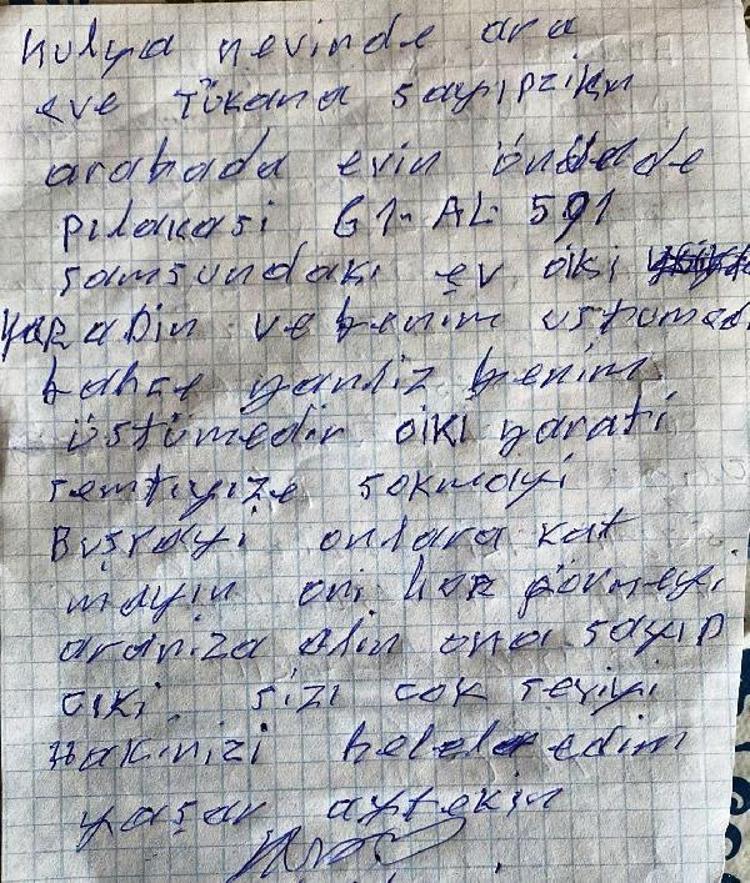 hulya nevinde ara
eve Tükana sayıpzikın
arabada evin önündede
pılakasi 61-AL 591
samsundakı ev oiki
yaratın ve benim üstümed
bahçe yanlız benim
üstümedir oiki yarati
semtiyize sokmayi
Buşrayi onlara kat
mayın oni hor görmeyi
araniza alin ona sayıp
cıki sizi cok seviyi
Hakinizi helel edim
yaşar aytekin